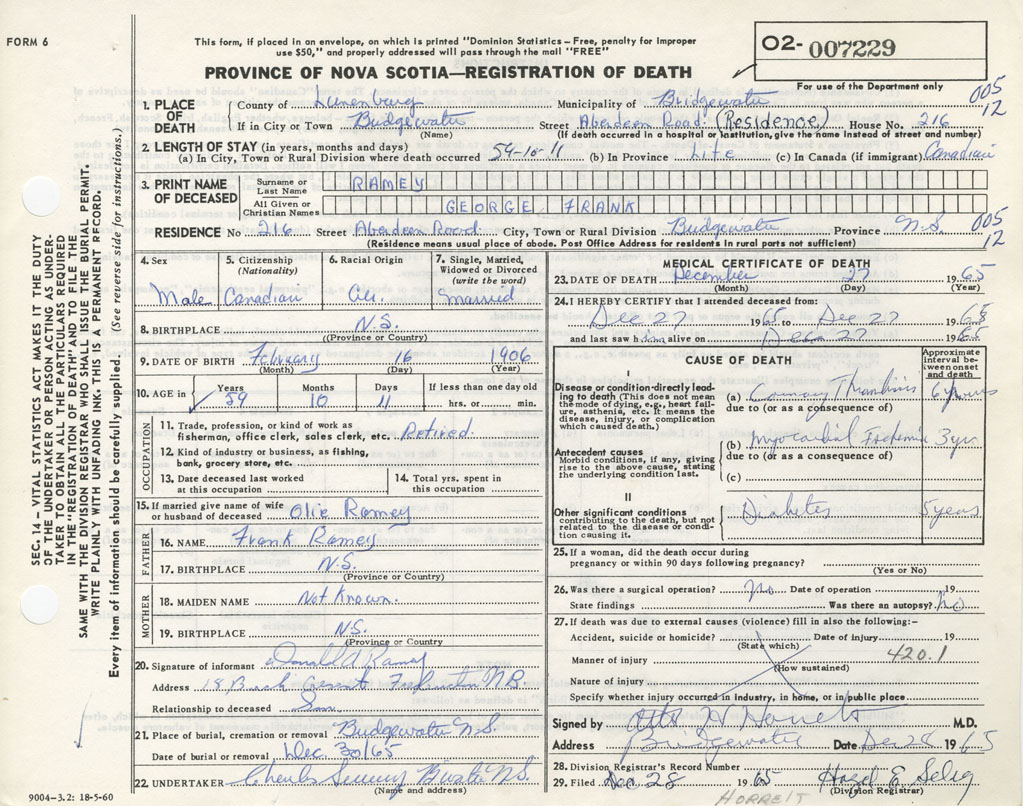 FORM 6
This form, if placed in an envelope, on which is printed "Dominion Statistics - Free, penalty for improper
use $50," and properly addressed will pass through the mail "FREE"
PROVINCE OF NOVA SCOTIA—REGISTRATION OF DEATH
02- 007229
For use of the Department only
005
12
1. PLACE OF DEATH
County of Lunenburg Municipality of Bridgewater
If in City or Town Bridgewater Street Aberdeen Road (Residence) House No. 216
(Name) (If death occurred in a hospital or institution, give the name instead of street and number)
2. LENGTH OF STAY (in years, months and days)
(a) In City, Town or Rural Division where death occurred 59-10-11 (b) In Province Life (c) In Canada (if immigrant) Canadian
3. PRINT NAME OF DECEASED
Surname or Last Name RAMEY
All Given or Christian Names GEORGE FRANK
RESIDENCE No. 216 Street Aberdeen Road City, Town or Rural Division Bridgewater Province N.S.
005
12
(Residence means usual place of abode. Post Office Address for residents in rural parts not sufficient)
4. Sex Male
5. Citizenship (Nationality) Canadian
6. Racial Origin
7. Single, Married, Widowed or Divorced (write the word) married
8. BIRTHPLACE N.S.
(Province or Country)
9. DATE OF BIRTH February 16 1906
(Month) (Day) (Year)
10. AGE in Years 59 Months 10 Days 11 If less than one day old hrs. or min.
OCCUPATION
11. Trade, profession, or kind of work as
fisherman, office clerk, sales clerk, etc. Retired
12. Kind of industry or business, as fishing,
bank, grocery store, etc.
13. Date deceased last worked
at this occupation
14. Total yrs. spent in
this occupation
15. If married give name of wife
or husband of deceased Olie Ramey
FATHER
16. NAME Frank Ramey
17. BIRTHPLACE N.S.
(Province or Country)
MOTHER
18. MAIDEN NAME Not Known.
19. BIRTHPLACE N.S.
(Province or Country
20. Signature of informant Donald A Ramey
Address 18 N.B.
Relationship to deceased Son
21. Place of burial, cremation or removal Bridgewater N.S.
Date of burial or removal Dec. 30/65
22. UNDERTAKER N.S.
(Name and address)
MEDICAL CERTIFICATE OF DEATH
23. DATE OF DEATH December 27 1965
(Month) (Day) (Year)
24. I HEREBY CERTIFY that I attended deceased from:
Dec 27 1965 to Dec 27 196
and last saw him alive on Dec 27 1965
CAUSE OF DEATH
Approximate interval between onset and death
I
Disease or condition directly leading to death (This does not mean
the mode of dying, e.g., heart failure, asthenia, etc. It means the
disease, injury, or complication
which caused death.)
(a) Coronary Thrombosis 6 hours
due to (or as a consequence of)
(b) Myocardial Ischemia 3 yr
due to (or as a consequence of)
(c)
Antecedent causes
Morbid conditions, if any, giving
rise to the above cause, stating
the underlying condition last.
II
Other significant conditions
contributing to the death, but not
related to the disease or condition causing it.
Diabetes 5 years
25. If a woman, did the death occur during
pregnancy or within 90 days following pregnancy?
(Yes or No)
26. Was there a surgical operation? No Date of operation 19
State findings Was there an autopsy? No
27. If death was due to external causes (violence) fill in also the following:-
Accident, suicide or homicide? Date of injury 19
(State which)
420.1
Manner of injury
(How sustained)
Nature of injury
Specify whether injury occurred in industry, in home, or in public place
Signed by M.D.
Address Bridgewater Date Dec 28 1965
28. Division Registrar's Record Number
29. Filed Dec 28 1965 Hazel E. Selig
(Division Registrar)
HORREIT
9004-3.2: 18-5-60
SEC. 14 - VITAL STATISTICS ACT MAKES IT THE DUTY
OF THE UNDERTAKER OR PERSON ACTING AS UNDERTAKER TO OBTAIN ALL THE PARTICULARS REQUIRED
IN THE "REGISTRATION OF DEATH" AND TO FILE THE
SAME WITH THE DIVISION REGISTRAR WHO SHALL ISSUE THE BURIAL PERMIT.
WRITE PLAINLY WITH UNFADING INK-THIS IS A PERMANENT RECORD.
Every item of information should be carefully supplied. (See reverse side for instructions.)